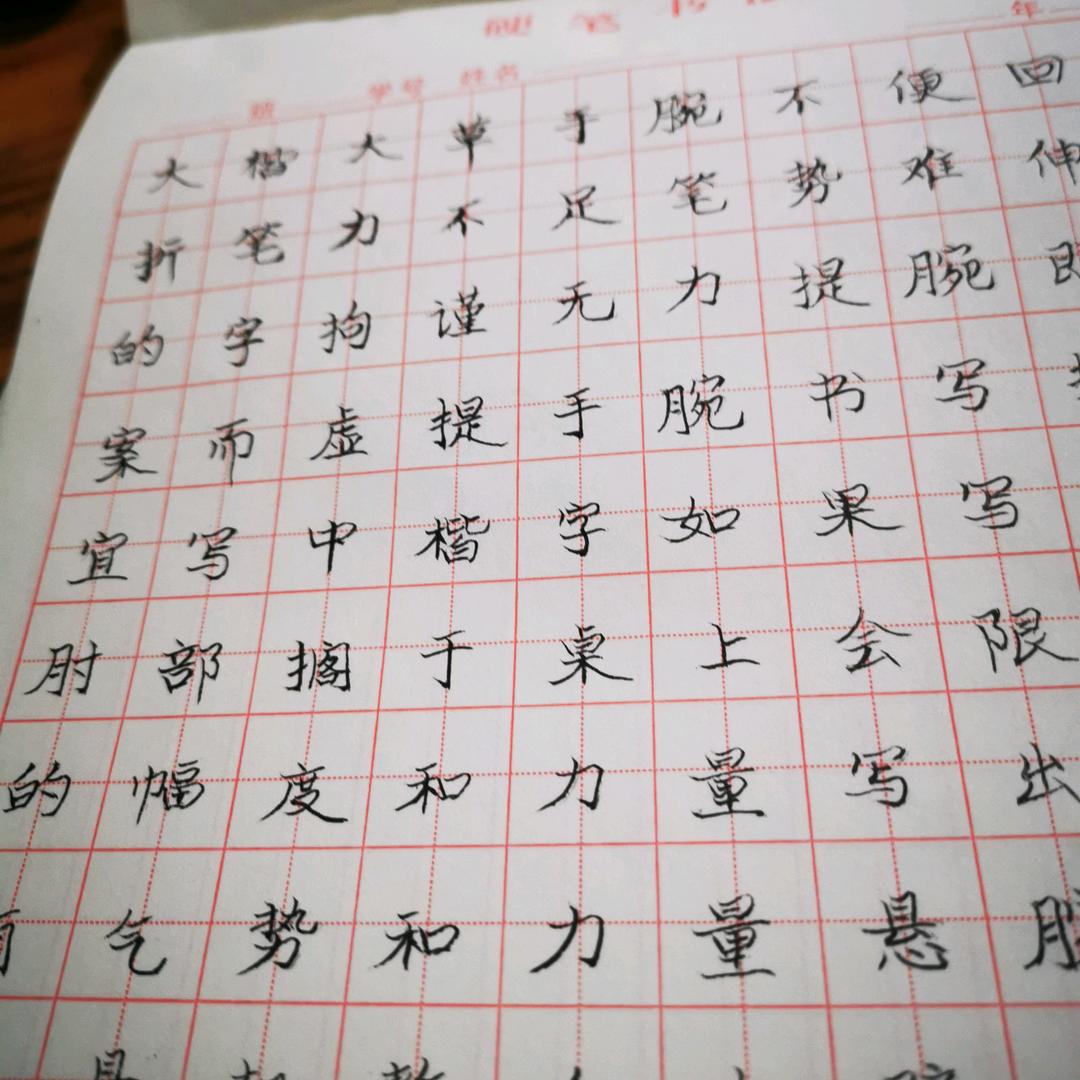 硬笔书
班 学号 姓名 年
大楷大草手腕不便回
折笔力不足笔势难伸
的字拘谨无力提腕
案而虚提手腕书写
宜写中楷字如果写
肘部搁于桌上会限
的幅度和力量写出
气势和力量悬